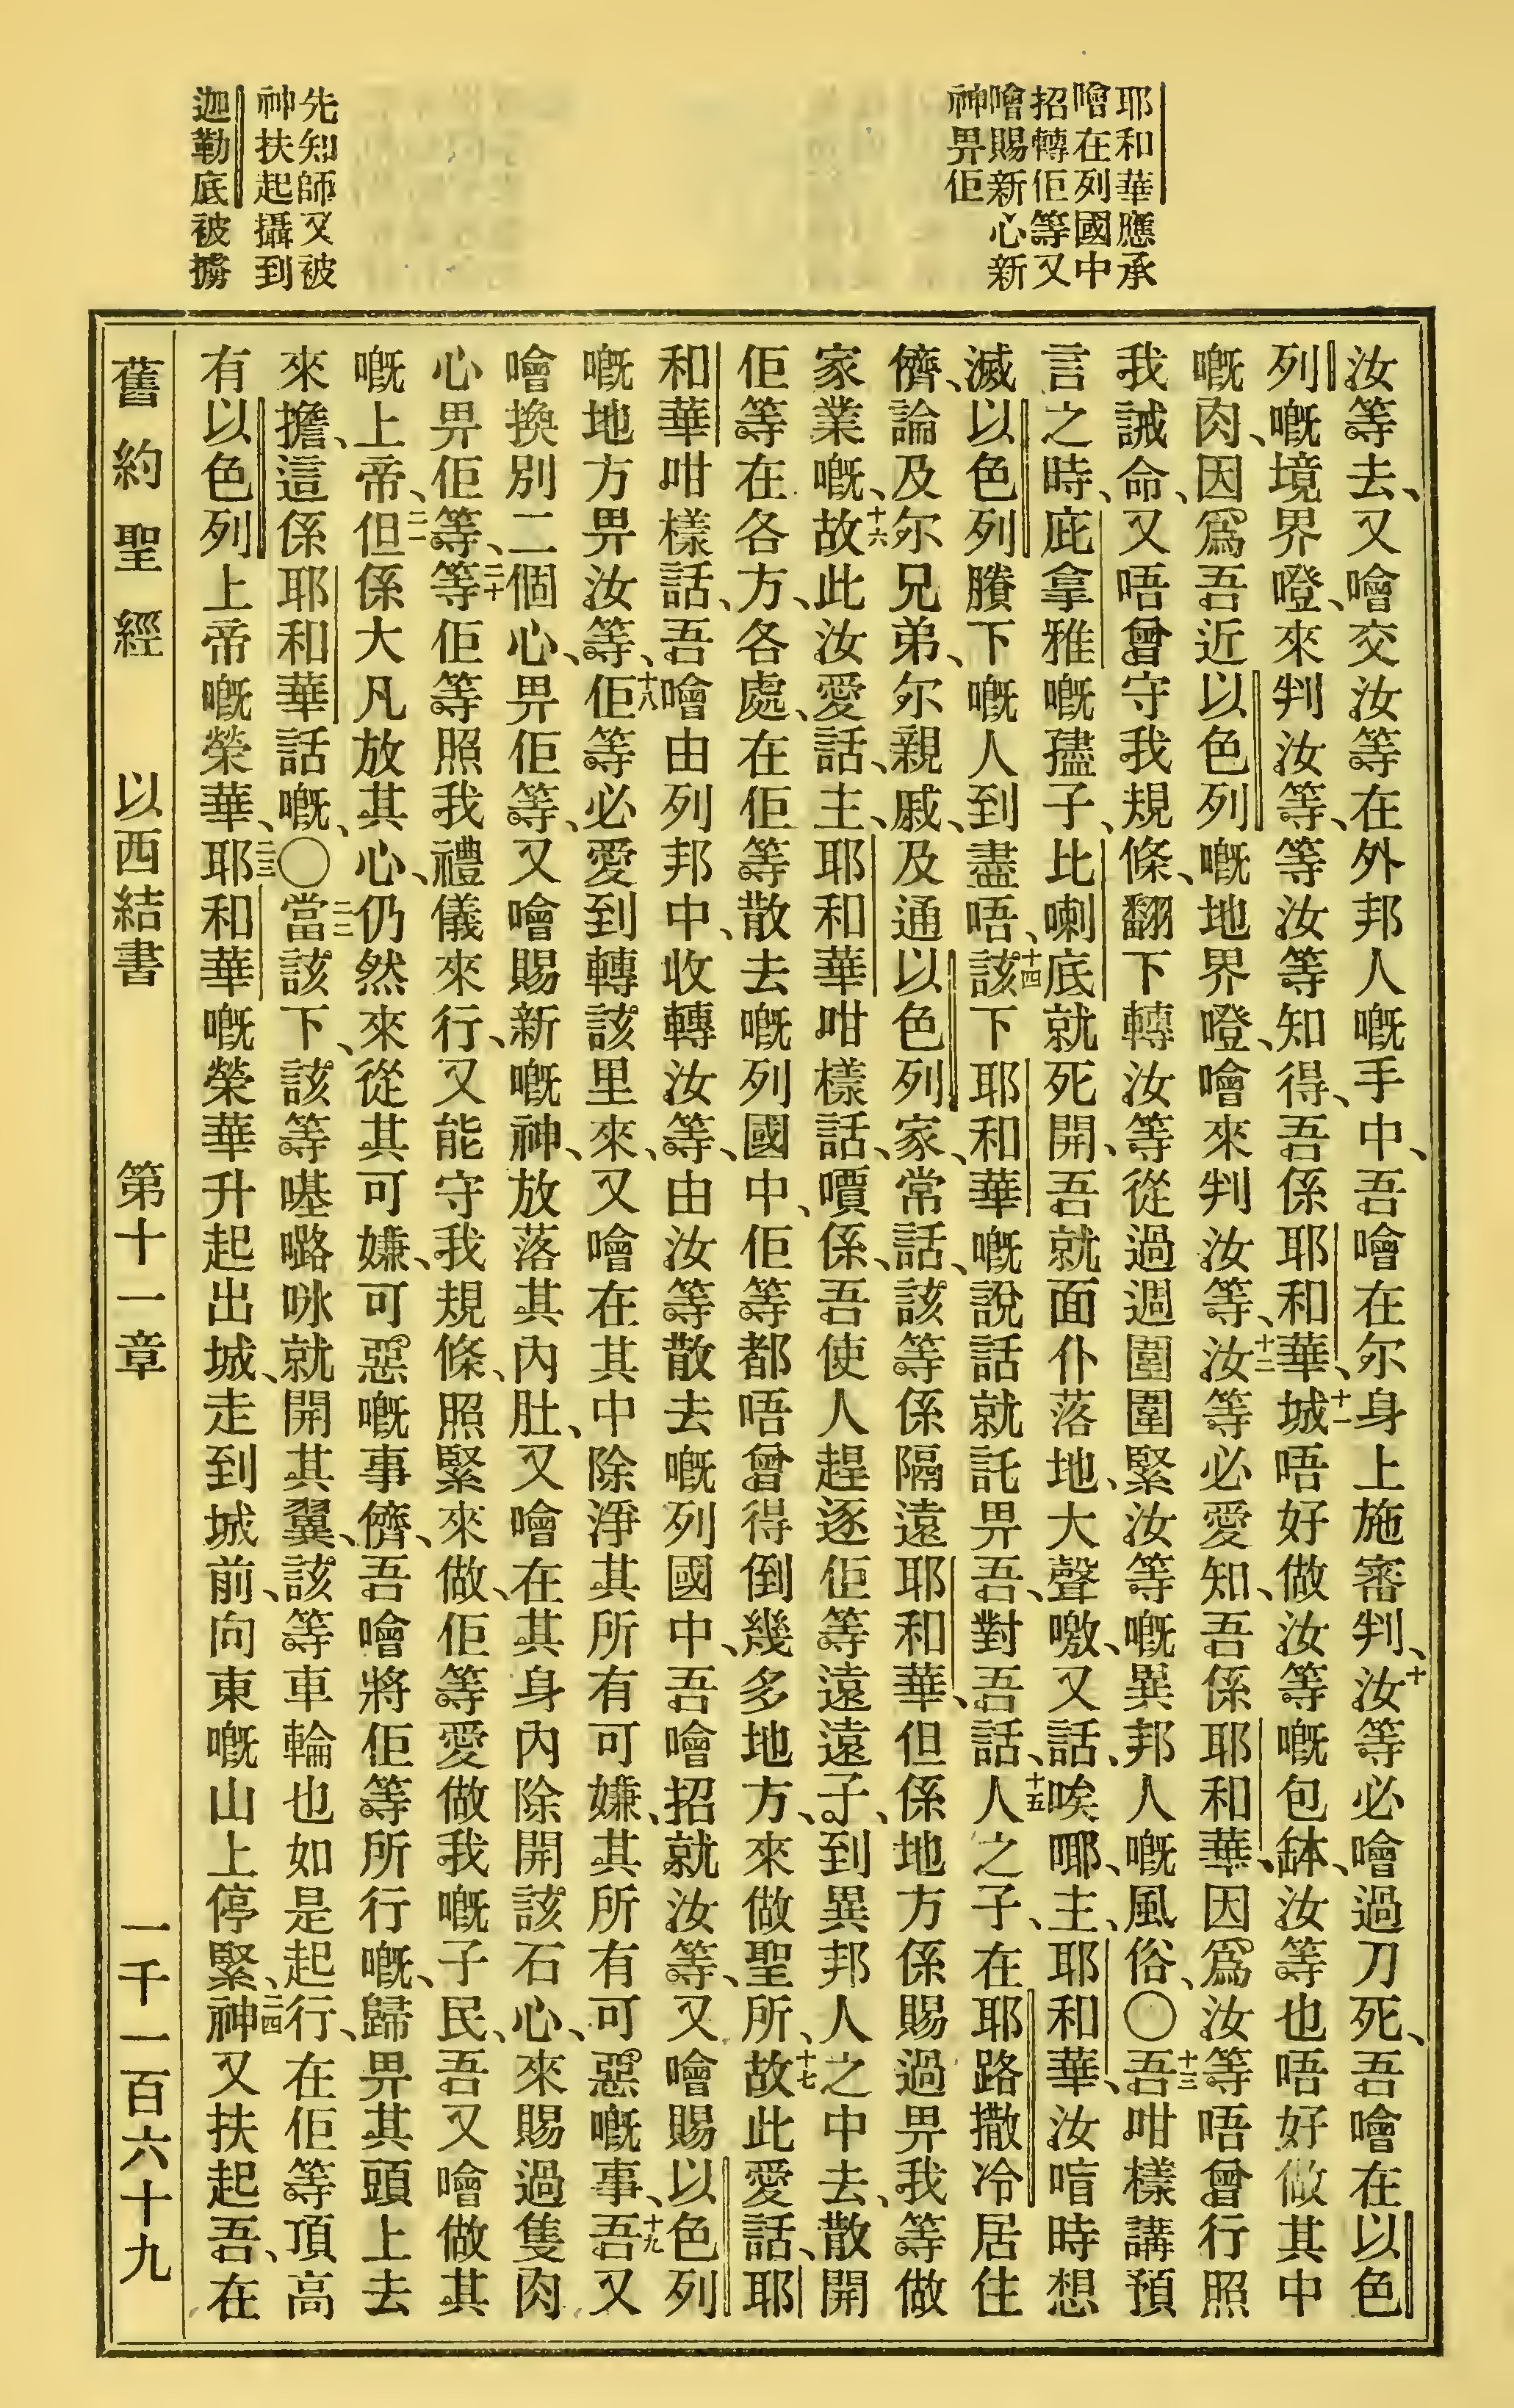 耶和華應承
噲在列國中
招轉佢等又
噲賜新心新
神畀佢
先知師又被
神扶起攝到
迦勒底被擄
汝等去、又噲交汝等在外邦人嘅手中、吾噲在尔身上施審判、十汝等必噲過刀死、吾噲在以色
列嘅境界嶝、來判汝等、等汝等知得、吾係耶和華、十一城唔好做汝等嘅包缽、汝等也唔好做其中
嘅肉、因爲吾近以色列嘅地界嶝、噲來判汝等、十二汝等必愛知、吾係耶和華、因爲汝等唔曾行照
我誡命、又唔曾守我規條、翻下轉汝等從過週圍圍緊汝等嘅異邦人嘅風俗、〇十三吾咁樣講預
言之時、庇拿雅嘅孻子、比喇底就死開、吾就面仆落地、大聲噭、又話、唉㖿、主、耶和華、汝㫖時想
滅以色列賸下嘅人到盡唔、十四該下耶和華嘅說話就託畀吾、對吾話、十五人之子、在耶路撒冷居住
儕、論及尔兄弟、尔親戚、及通以色列家、常話、該等係隔遠耶和華、但係地方係賜過畀我等做
家業嘅、十六故此汝愛話、主、耶和華咁樣話、嘪係、吾使人趕逐佢等遠遠子、到異邦人之中去、散開
佢等在各方、各處、在佢等散去嘅列國中、佢等都唔曾得倒幾多地方、來做聖所、十七故此愛話、耶
和華咁樣話、吾噲由列邦中、收轉汝等、由汝等散去嘅列國中、吾噲招就汝等、又噲賜以色列
嘅地方畀汝等、十八佢等必愛到轉該里來、又噲在其中除淨其所有可嫌、其所有可惡嘅事、十九吾又
噲換別二個心、畀佢等、又噲賜新嘅神、放落其內肚、又噲在其身內除開該石心、來賜過隻肉
心畀佢等、二十等佢等照我禮儀來行、又能守我規條、照緊來做、佢等愛做我嘅子民、吾又噲做其
嘅上帝、二一但係大凡放其心、仍然來從其可嫌、可惡嘅事儕、吾噲將佢等所行嘅、歸畀其頭上去
來擔、這係耶和華話嘅、〇二二當該下、該等𠼻㗖㕲就開其翼、該等車輪也如是起行、在佢等頂高
有以色列上帝嘅榮華、二三耶和華嘅榮華升起出城、走到城前、向東嘅山上停緊、二四神又扶起吾、在
舊約聖經　以西結書　第十一章　一千一百六十九